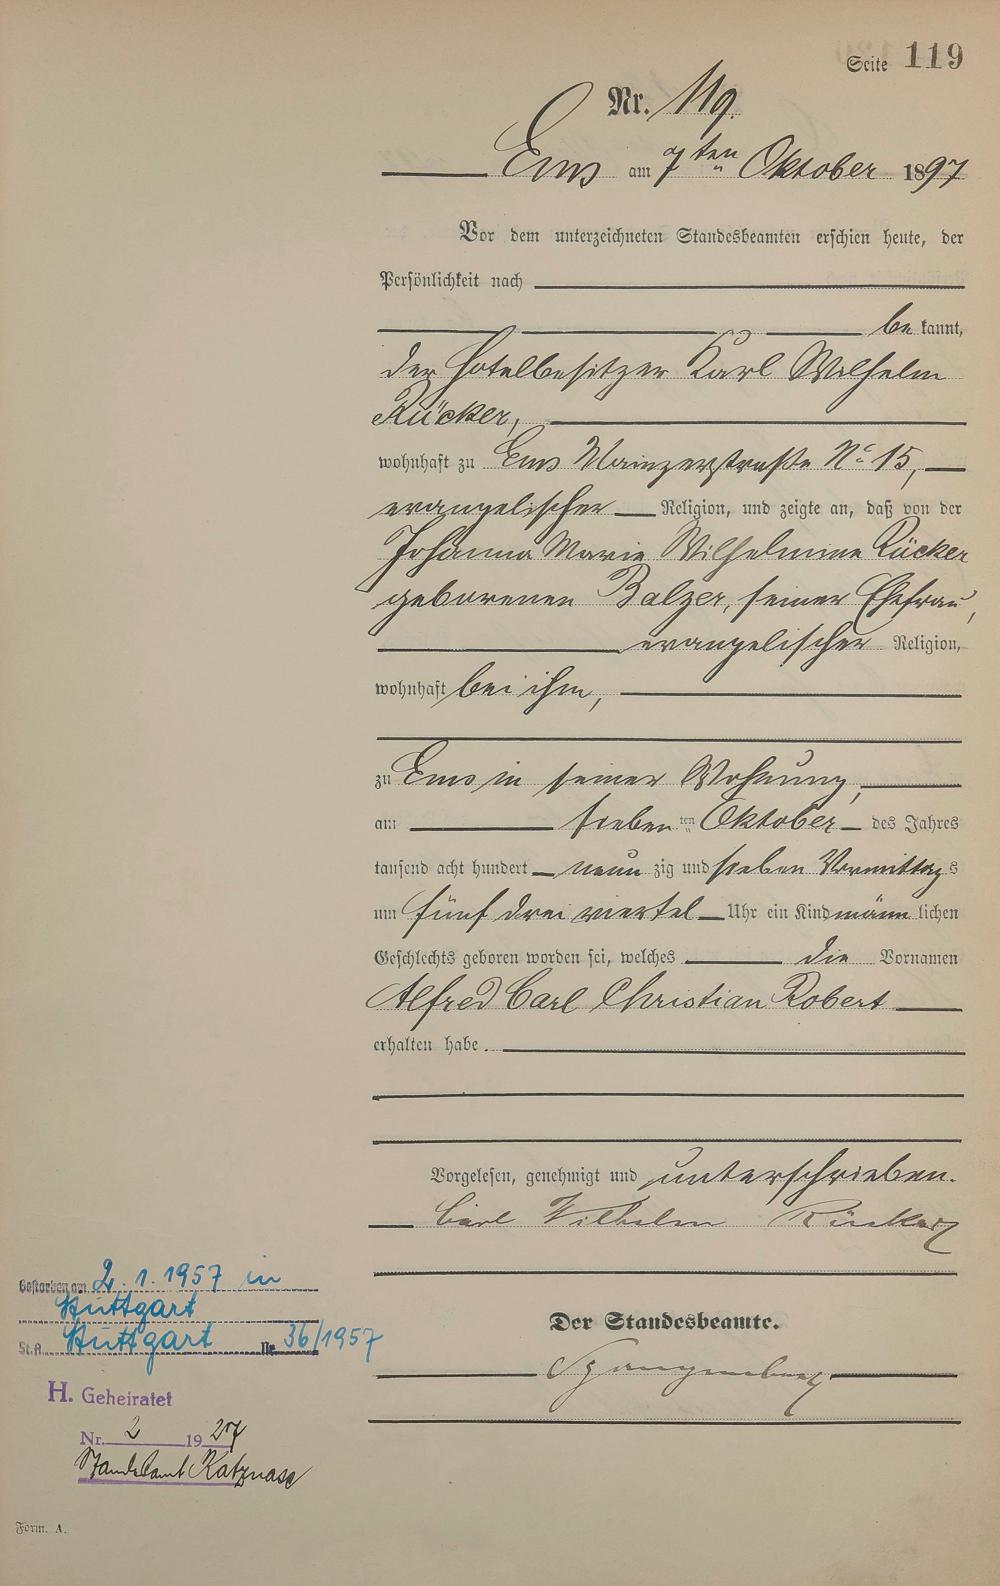 Seite 119
Nr. 119.
Ems am 7ten Oktober 1897
Vor dem unterzeichneten Standesbeamten erschien heute, der
Persönlichkeit nach
bekannt,
der Hotelbesitzer Karl Wilhelm
Rücker,
wohnhaft zu Ems Mainzerstraße No 15,
evangelischer Religion, und zeigte an, daß von der
Johanna Marie Wilhelmine Rücker
geborenen Balzer, seiner Ehefrau,
evangelischer Religion,
wohnhaft bei ihm,
zu Ems in seiner Wohnung,
am siebenten Oktober des Jahres
tausend acht hundert neunzig und sieben Vormittags
um fünf drei viertel Uhr ein Kind männlichen
Geschlechts geboren worden sei, welches die Vornamen
Alfred Carl Christian Robert
erhalten habe.
Vorgelesen, genehmigt und unterschrieben.
Carl Wilhelm Rücker
Der Standesbeamte.
Gestorben am 2.1.1957 in
Stuttgart
St.A. Stuttgart Nr. 36/1957
H. Geheiratet
Nr. 2 1927
Standesamt
Form. A.